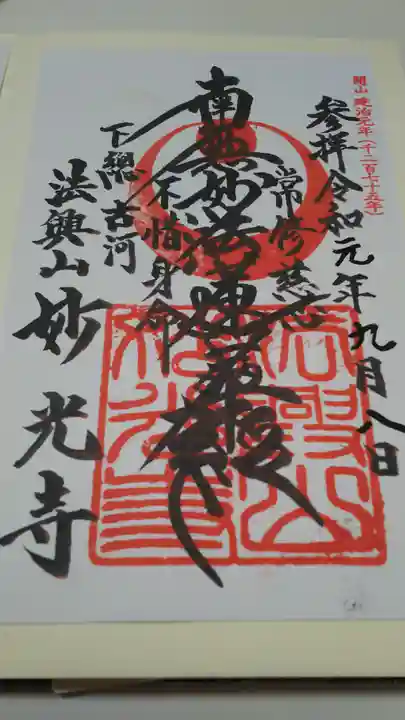 開山 建治元年(千二百七十五年)
参拝 令和元年九月八日
常修慈悲
南無妙法蓮華経
不惜身命
下總古河
法興山 妙光寺